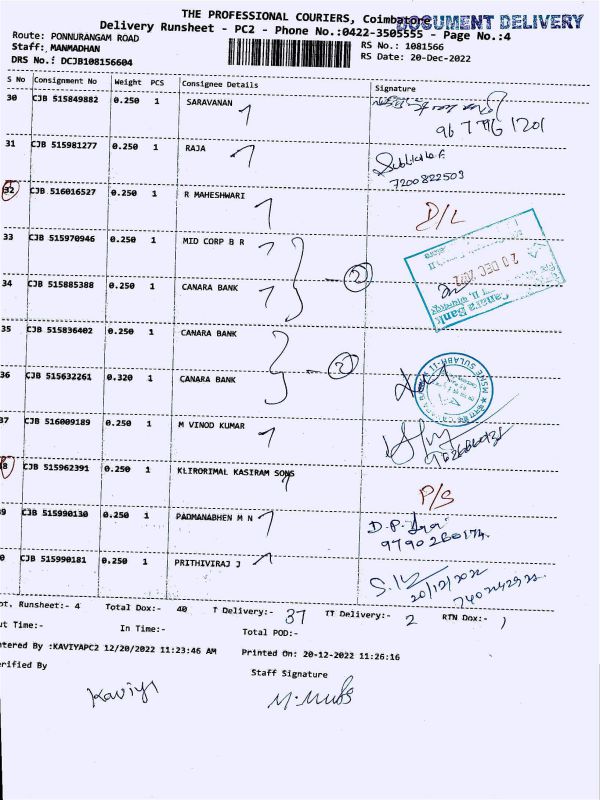 THE PROFESSIONAL COURIERS, Coimbatore
DOCUMENT DELIVERY
Delivery Runsheet - PC2 - Phone No.:0422-3505555 - Page No.:4
Route: PONNURANGAM ROAD
RS No.: 1081566
Staff: MANMADHAN
RS Date: 20-Dec-2022
DRS No.: DCJB108156604
S No Consignment No Weight PCS Consignee Details Signature
30 CJB 515849882 0.250 1 SARAVANAN
96 7716 1201
31 CJB 515981277 0.250 1 RAJA
7200822503
32 CJB 516016527 0.250 1 R MAHESHWARI D/L
33 CJB 515970946 0.250 1 MID CORP B R
20 DEC 2022
Canara Bank
34 CJB 515885388 0.250 1 CANARA BANK
2
35 CJB 515836402 0.250 1 CANARA BANK
2
MSME SULABH-II
36 CJB 515632261 0.320 1 CANARA BANK
37 CJB 516009189 0.250 1 M VINOD KUMAR
38 CJB 515962391 0.250 1 KLIRORIMAL KASIRAM SONS P/S
9 CJB 515990130 0.250 1 PADMANABHEN M N D.P.
9790260174
0 CJB 515990181 0.250 1 PRITHIVIRAJ J
20/12/2022
7402442922
ot. Runsheet:- 4 Total Dox:- 40 T Delivery:- 37 TT Delivery:- 2 RTN Dox:- 1
ut Time:- In Time:- Total POD:-
ntered By :KAVIYAPC2 12/20/2022 11:23:46 AM Printed On: 20-12-2022 11:26:16
erified By Staff Signature
Kaviya